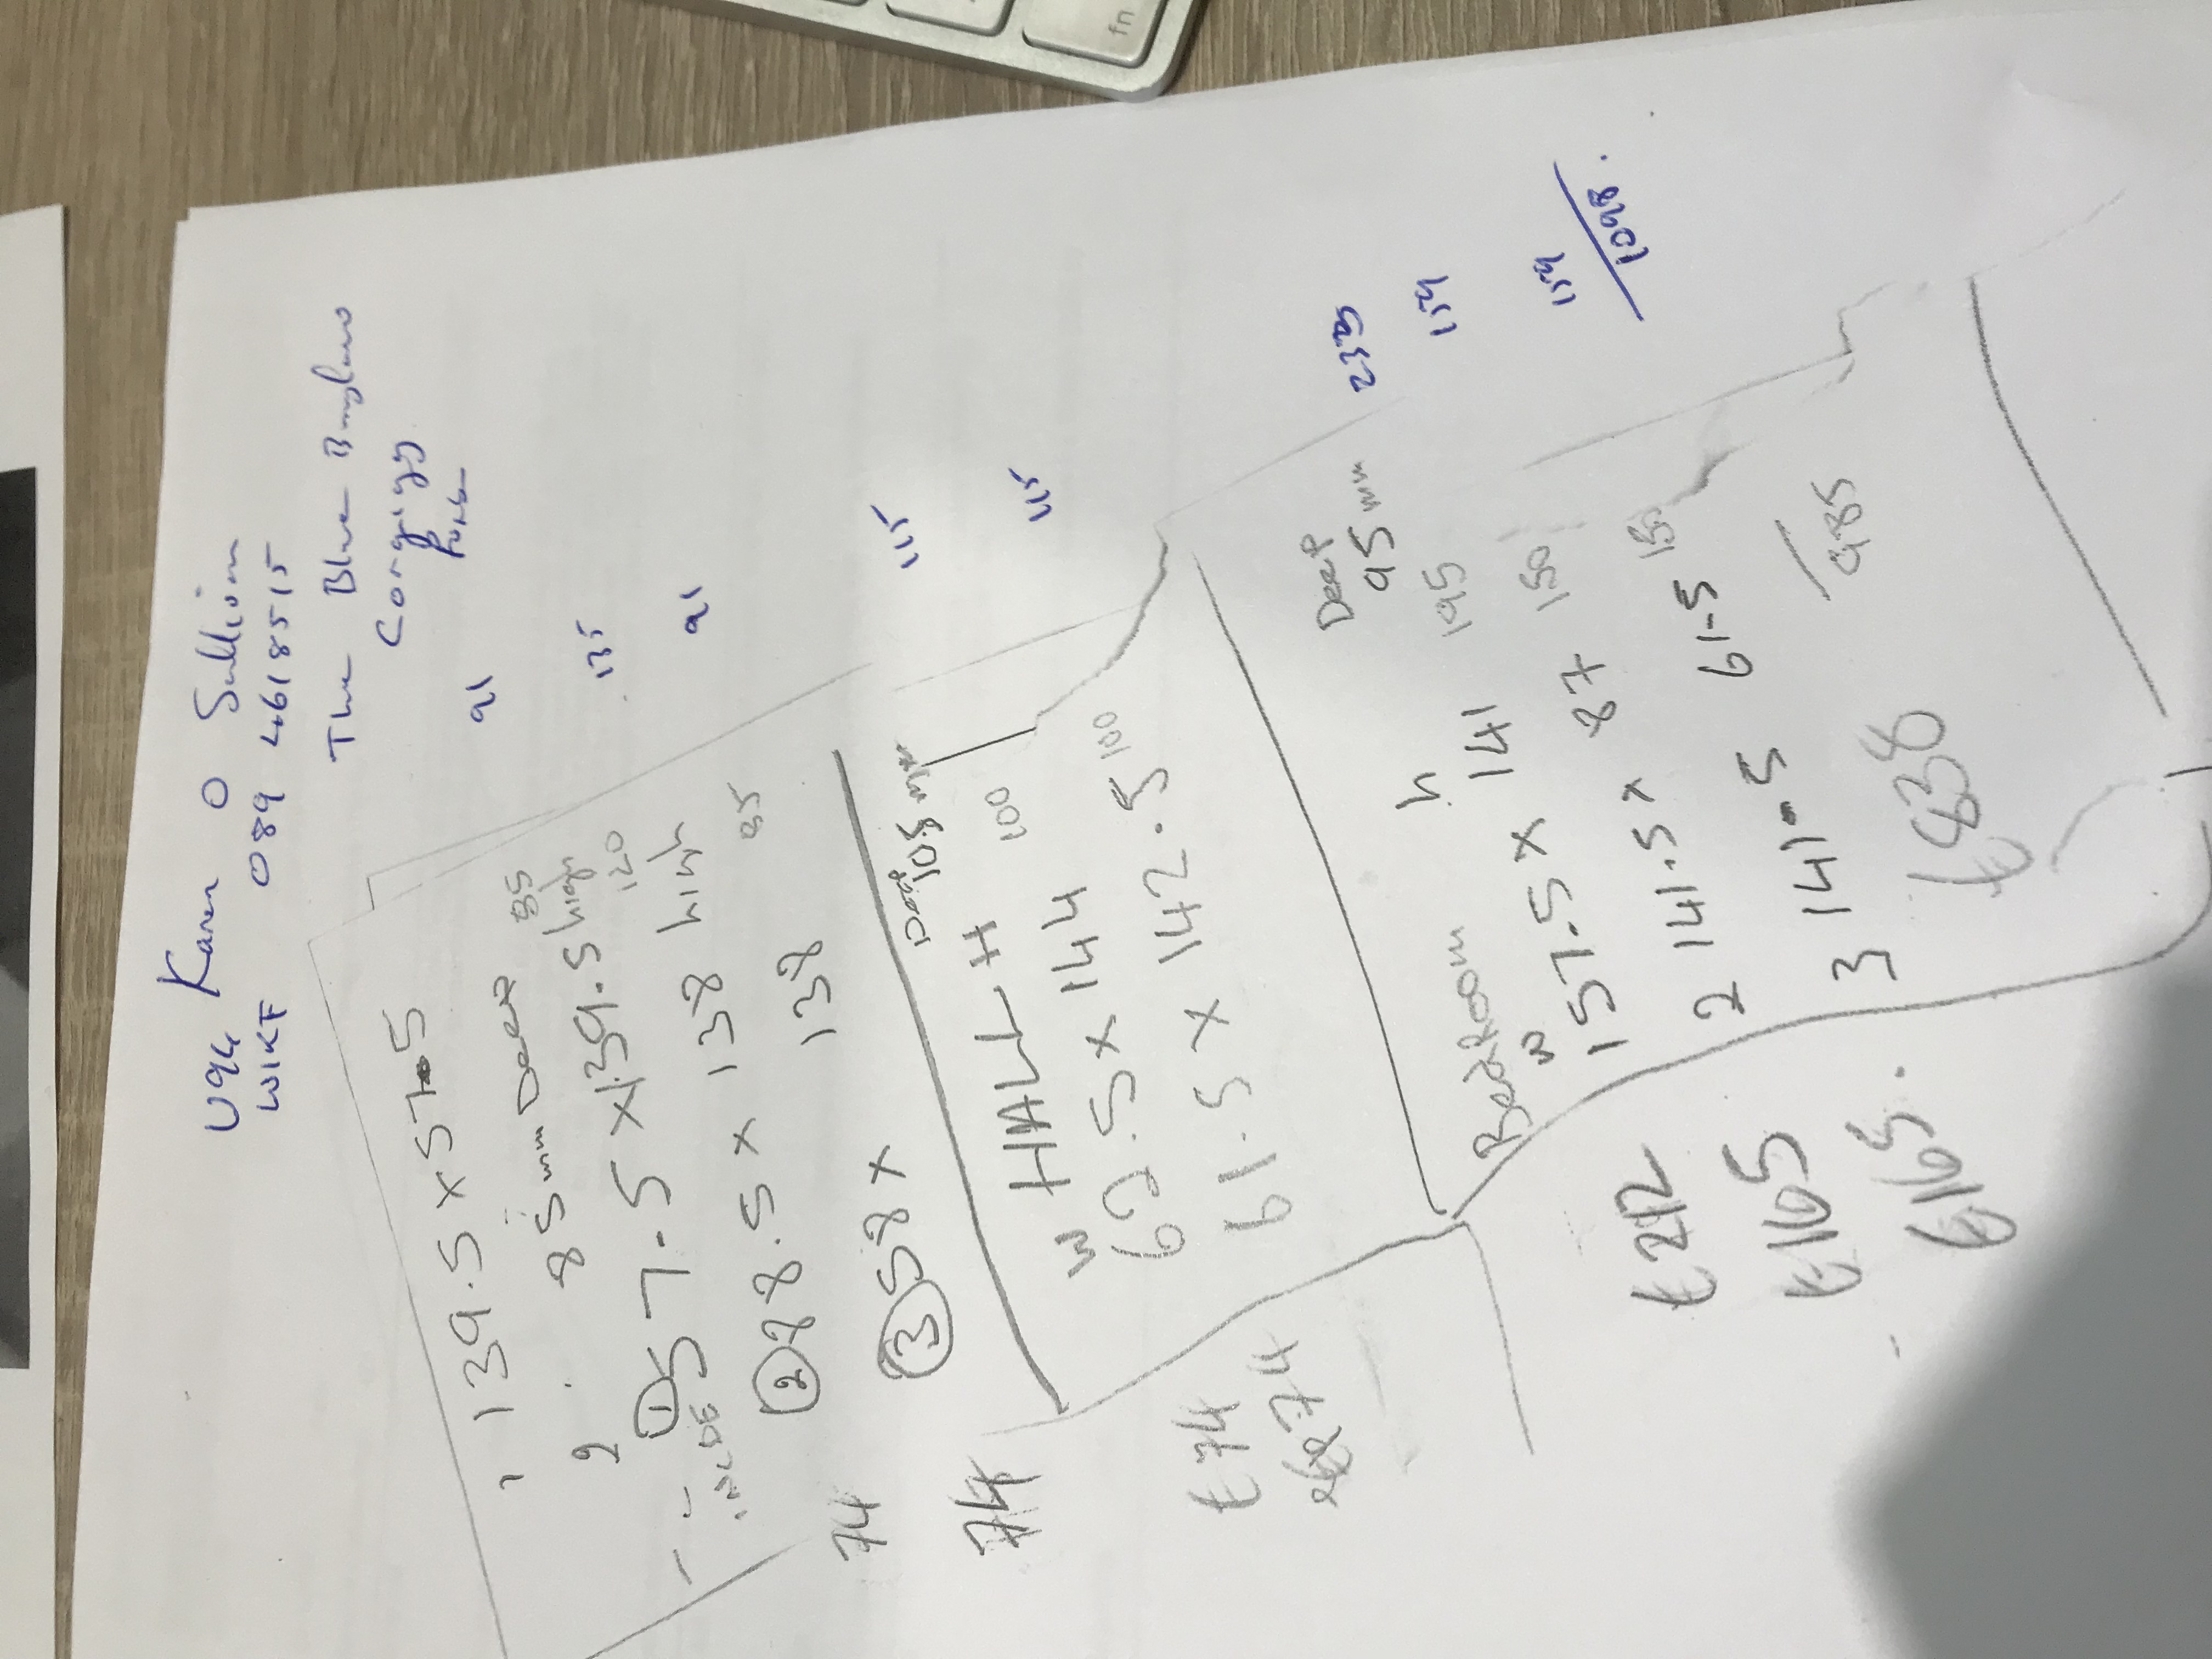 Karen O Sullivan
U94 W1KF 089 4618515
The Blue Bunglow
Corrgigg
Park
1 139.5 x 57.5
91
2 85mm Deep
85
① 57.5 x 139.5 high
120
135
INSIDE
② 98.5 x 138 high
91
③ 58 x 138
85
74
Deep 105 mm
115
74
HALL H 100
W
62.5 x 144
115
61.5 x 142.5 100
€74
€74
Deep
95 mm
235
Bedroom h 195
W
157.5 x 141 150
154
2 141.5 x 87 150
154
3 141.5 61.5
1098.
485
€838
€212
€165
€165.
fn